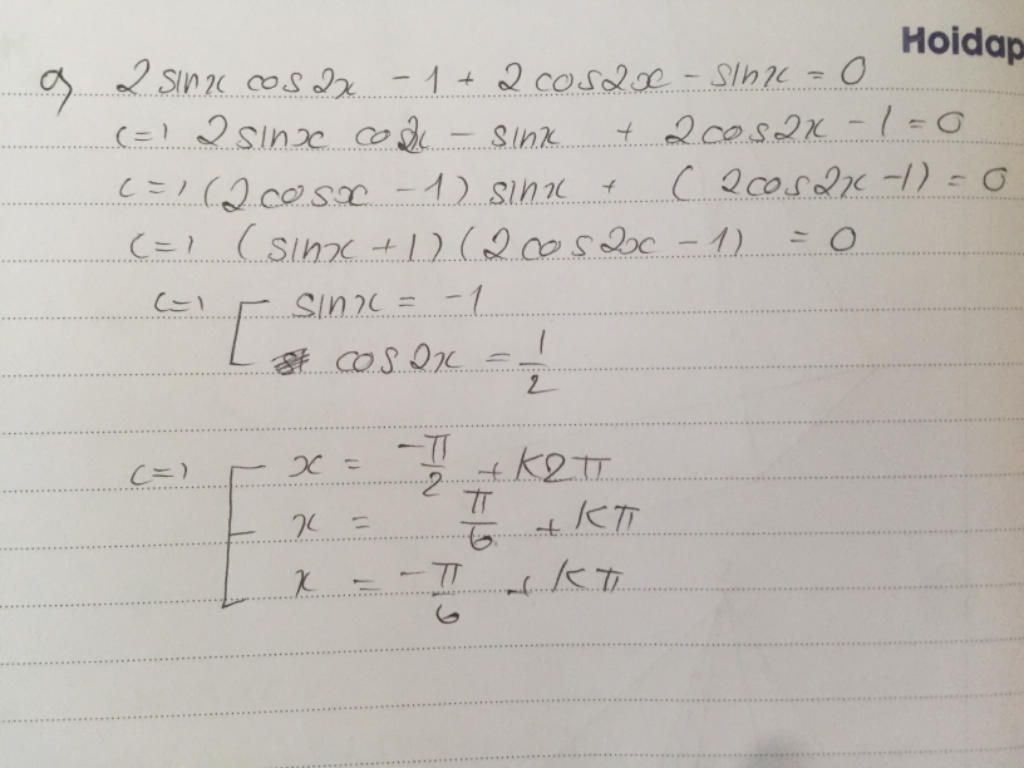 Hoidap
g) 2 sinx cos2x - 1 + 2 cos2x - sinx = 0
<=> 2 sinx cos2x - sinx + 2cos2x - 1 = 0
<=> (2cosx - 1) sinx + (2cos2x - 1) = 0
<=> (sinx + 1)(2cos2x - 1) = 0
<=> [ sinx = -1
cos2x = 1/2
<=> [ x = -π/2 + K2π
x = π/6 + Kπ
x = -π/6 + Kπ